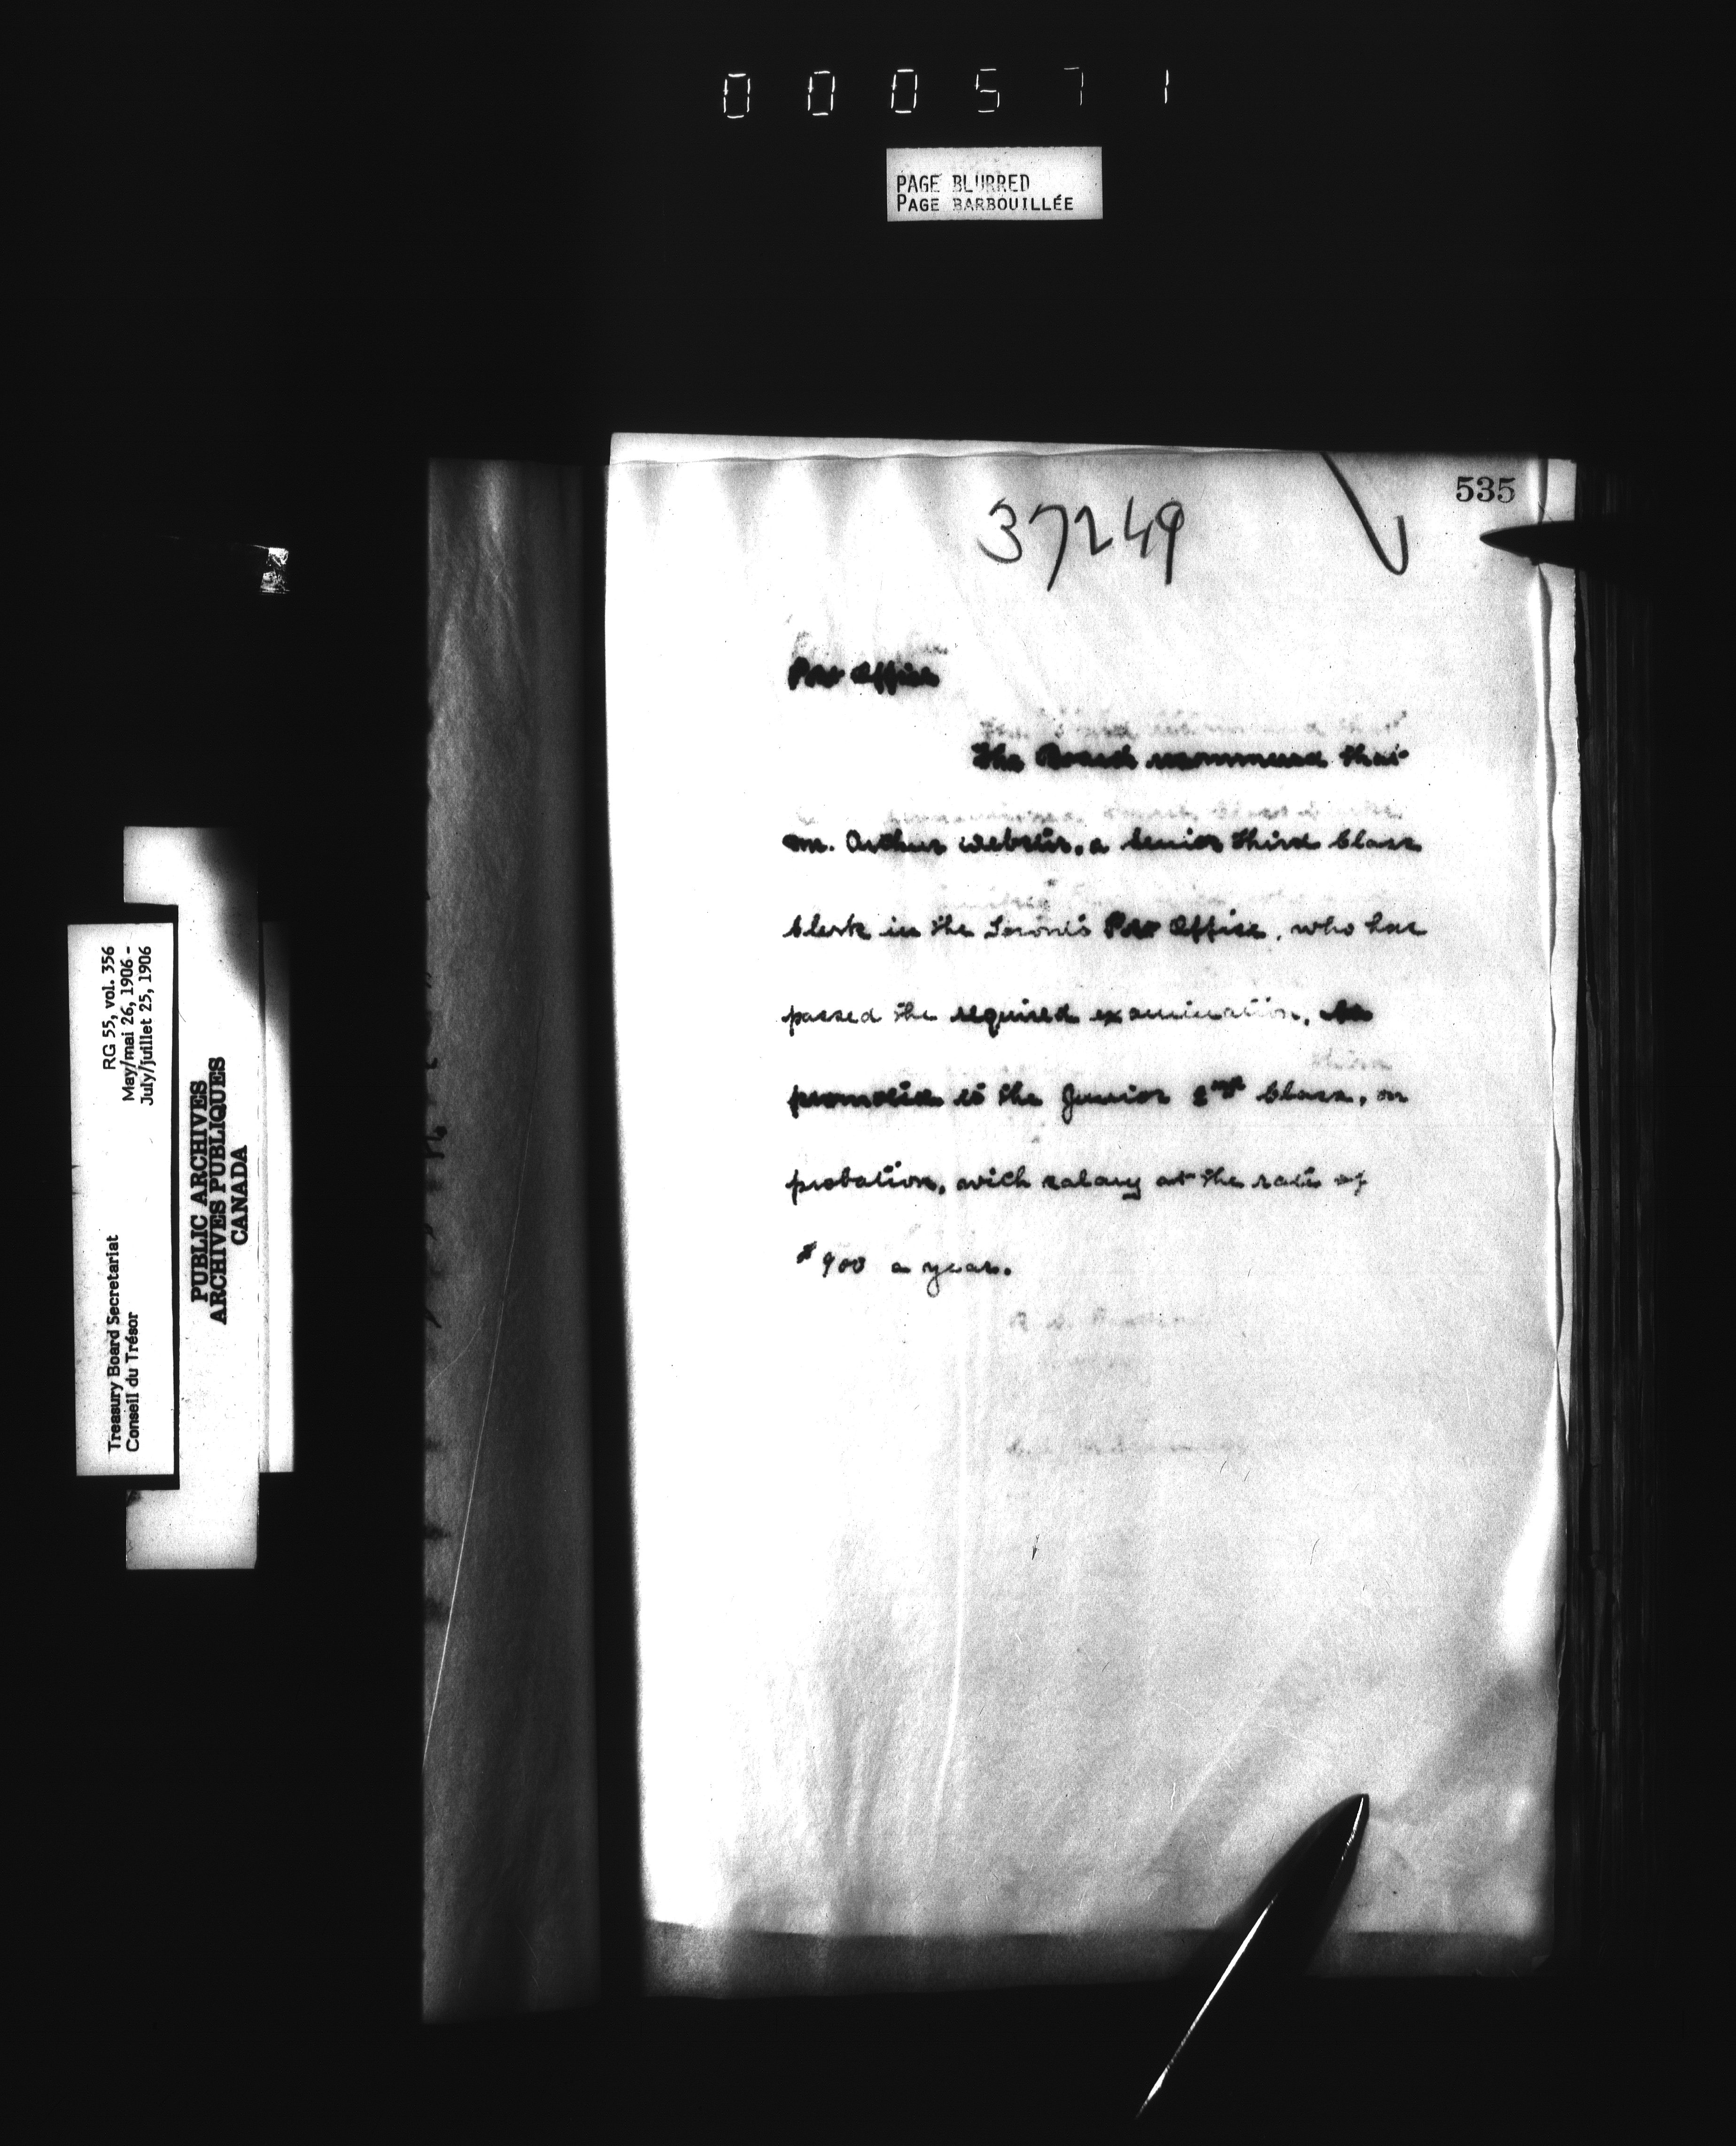 000571
PAGE BLURRED
PAGE BARBOUILLÉE
535
37249
Post Office
The Board recommend that
Mr. Arthur Webster, a Senior Third Class
Clerk in the Toronto Post Office, who has
passed the required examination, be
promoted to the Junior 2nd Class, on
probation, with salary at the rate of
$900 a year.
Treasury Board Secretariat RG 55, vol. 356
Conseil du Trésor May/mai 26, 1906 -
July/juillet 25, 1906
PUBLIC ARCHIVES
ARCHIVES PUBLIQUES
CANADA